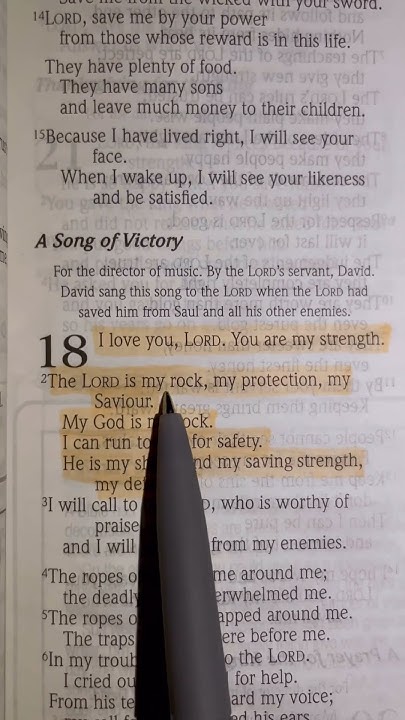 Save me from the wicked with your sword.
14LORD, save me by your power
from those whose reward is in this life.
They have plenty of food.
They have many sons
and leave much money to their children.
15Because I have lived right, I will see your
face.
When I wake up, I will see your likeness
and be satisfied.
A Song of Victory
For the director of music. By the LORD's servant, David.
David sang this song to the LORD when the LORD had
saved him from Saul and all his other enemies.
18 I love you, LORD. You are my strength.
2The LORD is my rock, my protection, my
Saviour.
My God is ock.
I can run to for safety.
He is my sh nd my saving strength,
my de
3I will call to , who is worthy of
praise
and I will from my enemies.
4The ropes o me around me;
the deadly erwhelmed me.
5The ropes o apped around me.
The traps ere before me.
6In my troub o the LORD.
I cried ou for help.
From his te ard my voice;
his ears